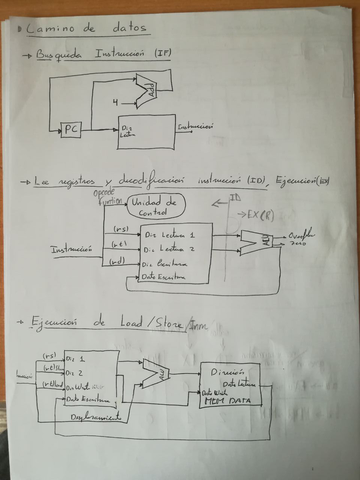 Camino de datos
→ Busqueda Instrucción (IF)
Add
4
PC
Dir
Lectura
Instrucción
→ Lee registros y decodificación instrucción (ID), Ejecución (EX)
Opcode
function
Unidad de
Control
ID
→ EX (R)
(rs)
Dir Lectura 1
(rt)
Dir Lectura 2
ALU
Overflow
zero
Instrucción
(rd)
Dir Escritura
Dato Escritura
→ Ejecución de Load/Store/Inm
(rs)
Dir 1
(rt)
Dir 2
ALU
Dirección
Dato Lectura
Dato Escritura
Dato Writ
MEM DATA
Desplazamiento